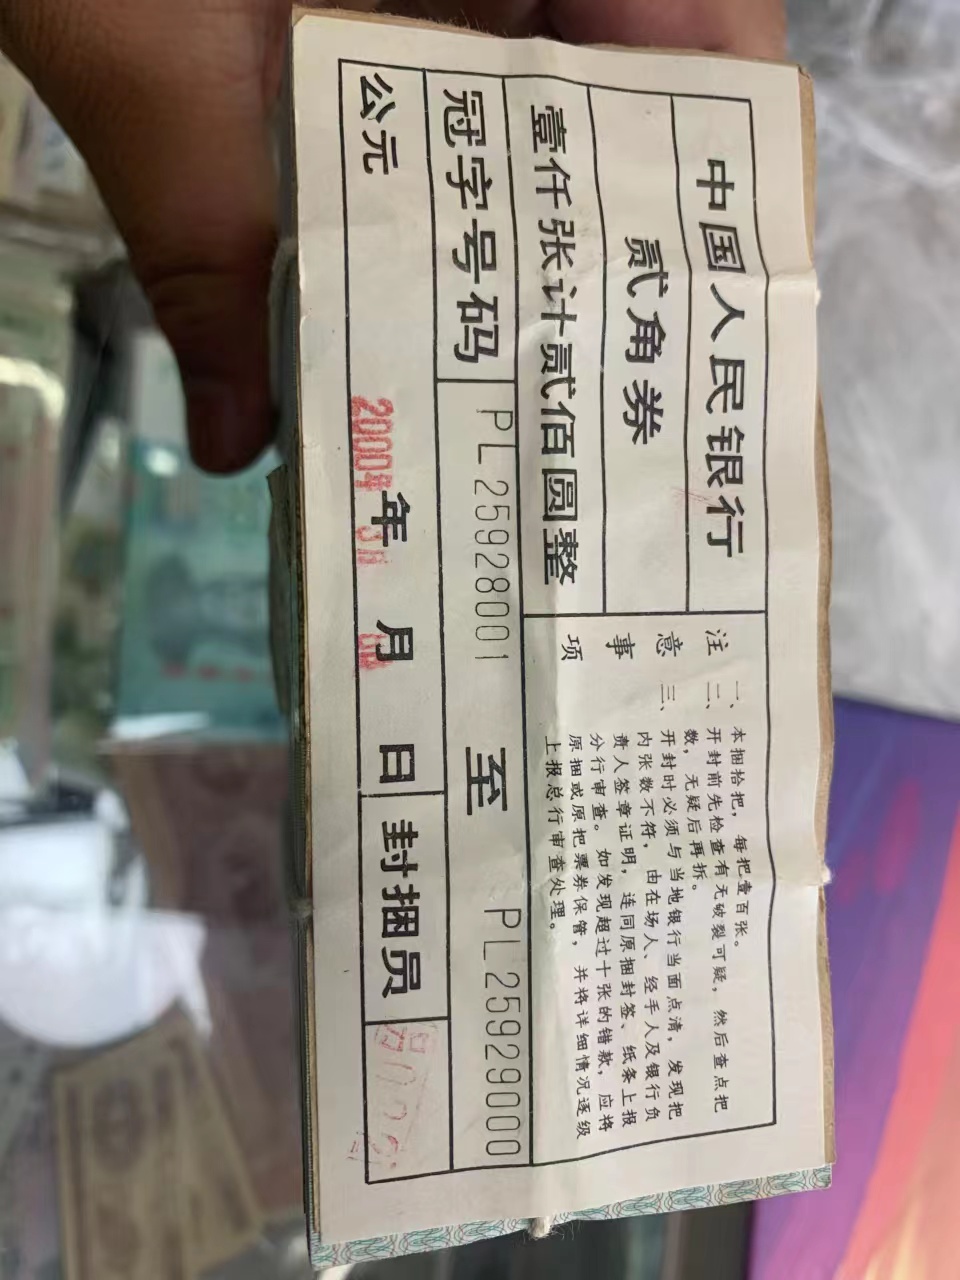 中国人民银行
贰角券
壹仟张计贰佰圆整
注意事项
一、本捆拾把，每把壹百张。
二、开封前先检查有无破裂可疑，然后查点把
数，无疑后再拆。
三、开封时必须与当地银行当面点清，发现把
内张数不符，由在场人、经手人及银行负
责人签章证明，连同原捆封签、纸条上报
分行审查。如发现超过十张的错款，应将
原捆或原把票券保管，并将详细情况逐级
上报总行审查处理。
冠字号码 PL 25928001 至 PL 25929000
公元 2000年 年 月 日 封捆员